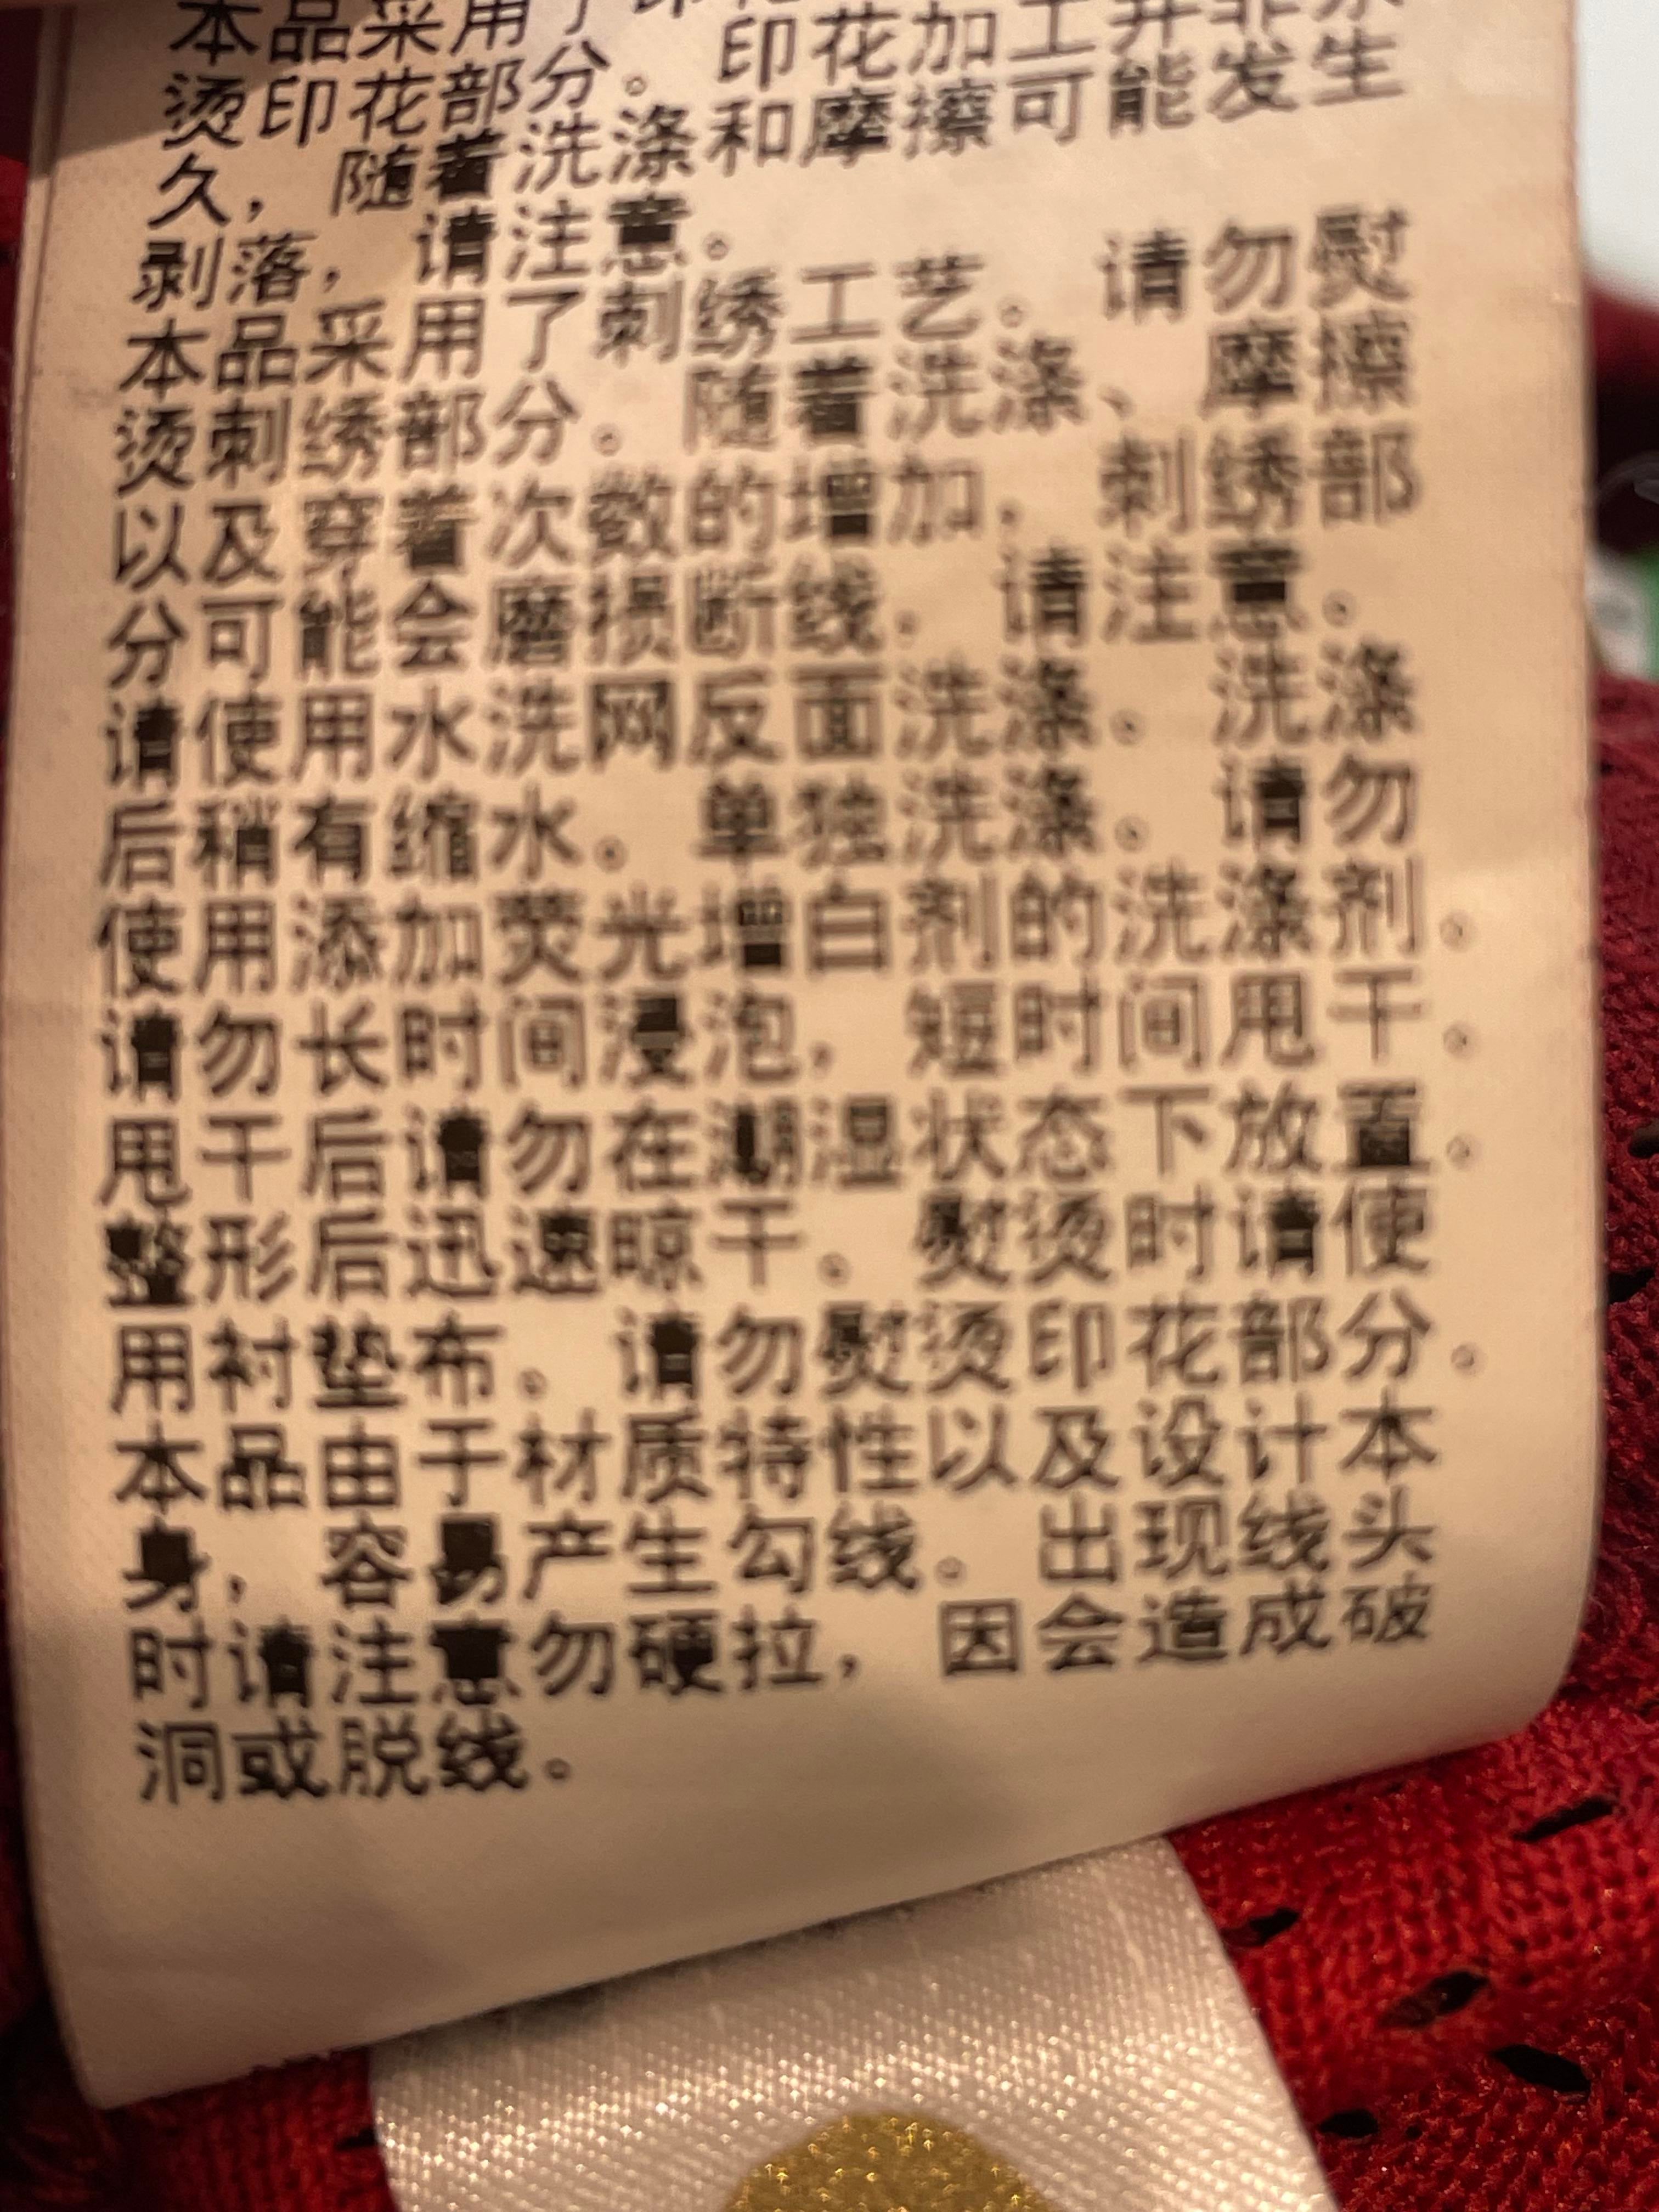 本品采用了印花
烫印花部分。印花加工并非永
久，随着洗涤和摩擦可能发生
剥落，请注意。
本品采用了刺绣工艺。请勿熨
烫刺绣部分。随着洗涤、摩擦
以及穿着次数的增加，刺绣部
分可能会磨损断线，请注意。
请使用水洗网反面洗涤。洗涤
后稍有缩水。单独洗涤。请勿
使用添加荧光增白剂的洗涤剂。
请勿长时间浸泡，短时间甩干。
甩干后请勿在潮湿状态下放置。
整形后迅速晾干。熨烫时请使
用衬垫布。请勿熨烫印花部分。
本品由于材质特性以及设计本
身，容易产生勾线。出现线头
时请注意勿硬拉，因会造成破
洞或脱线。